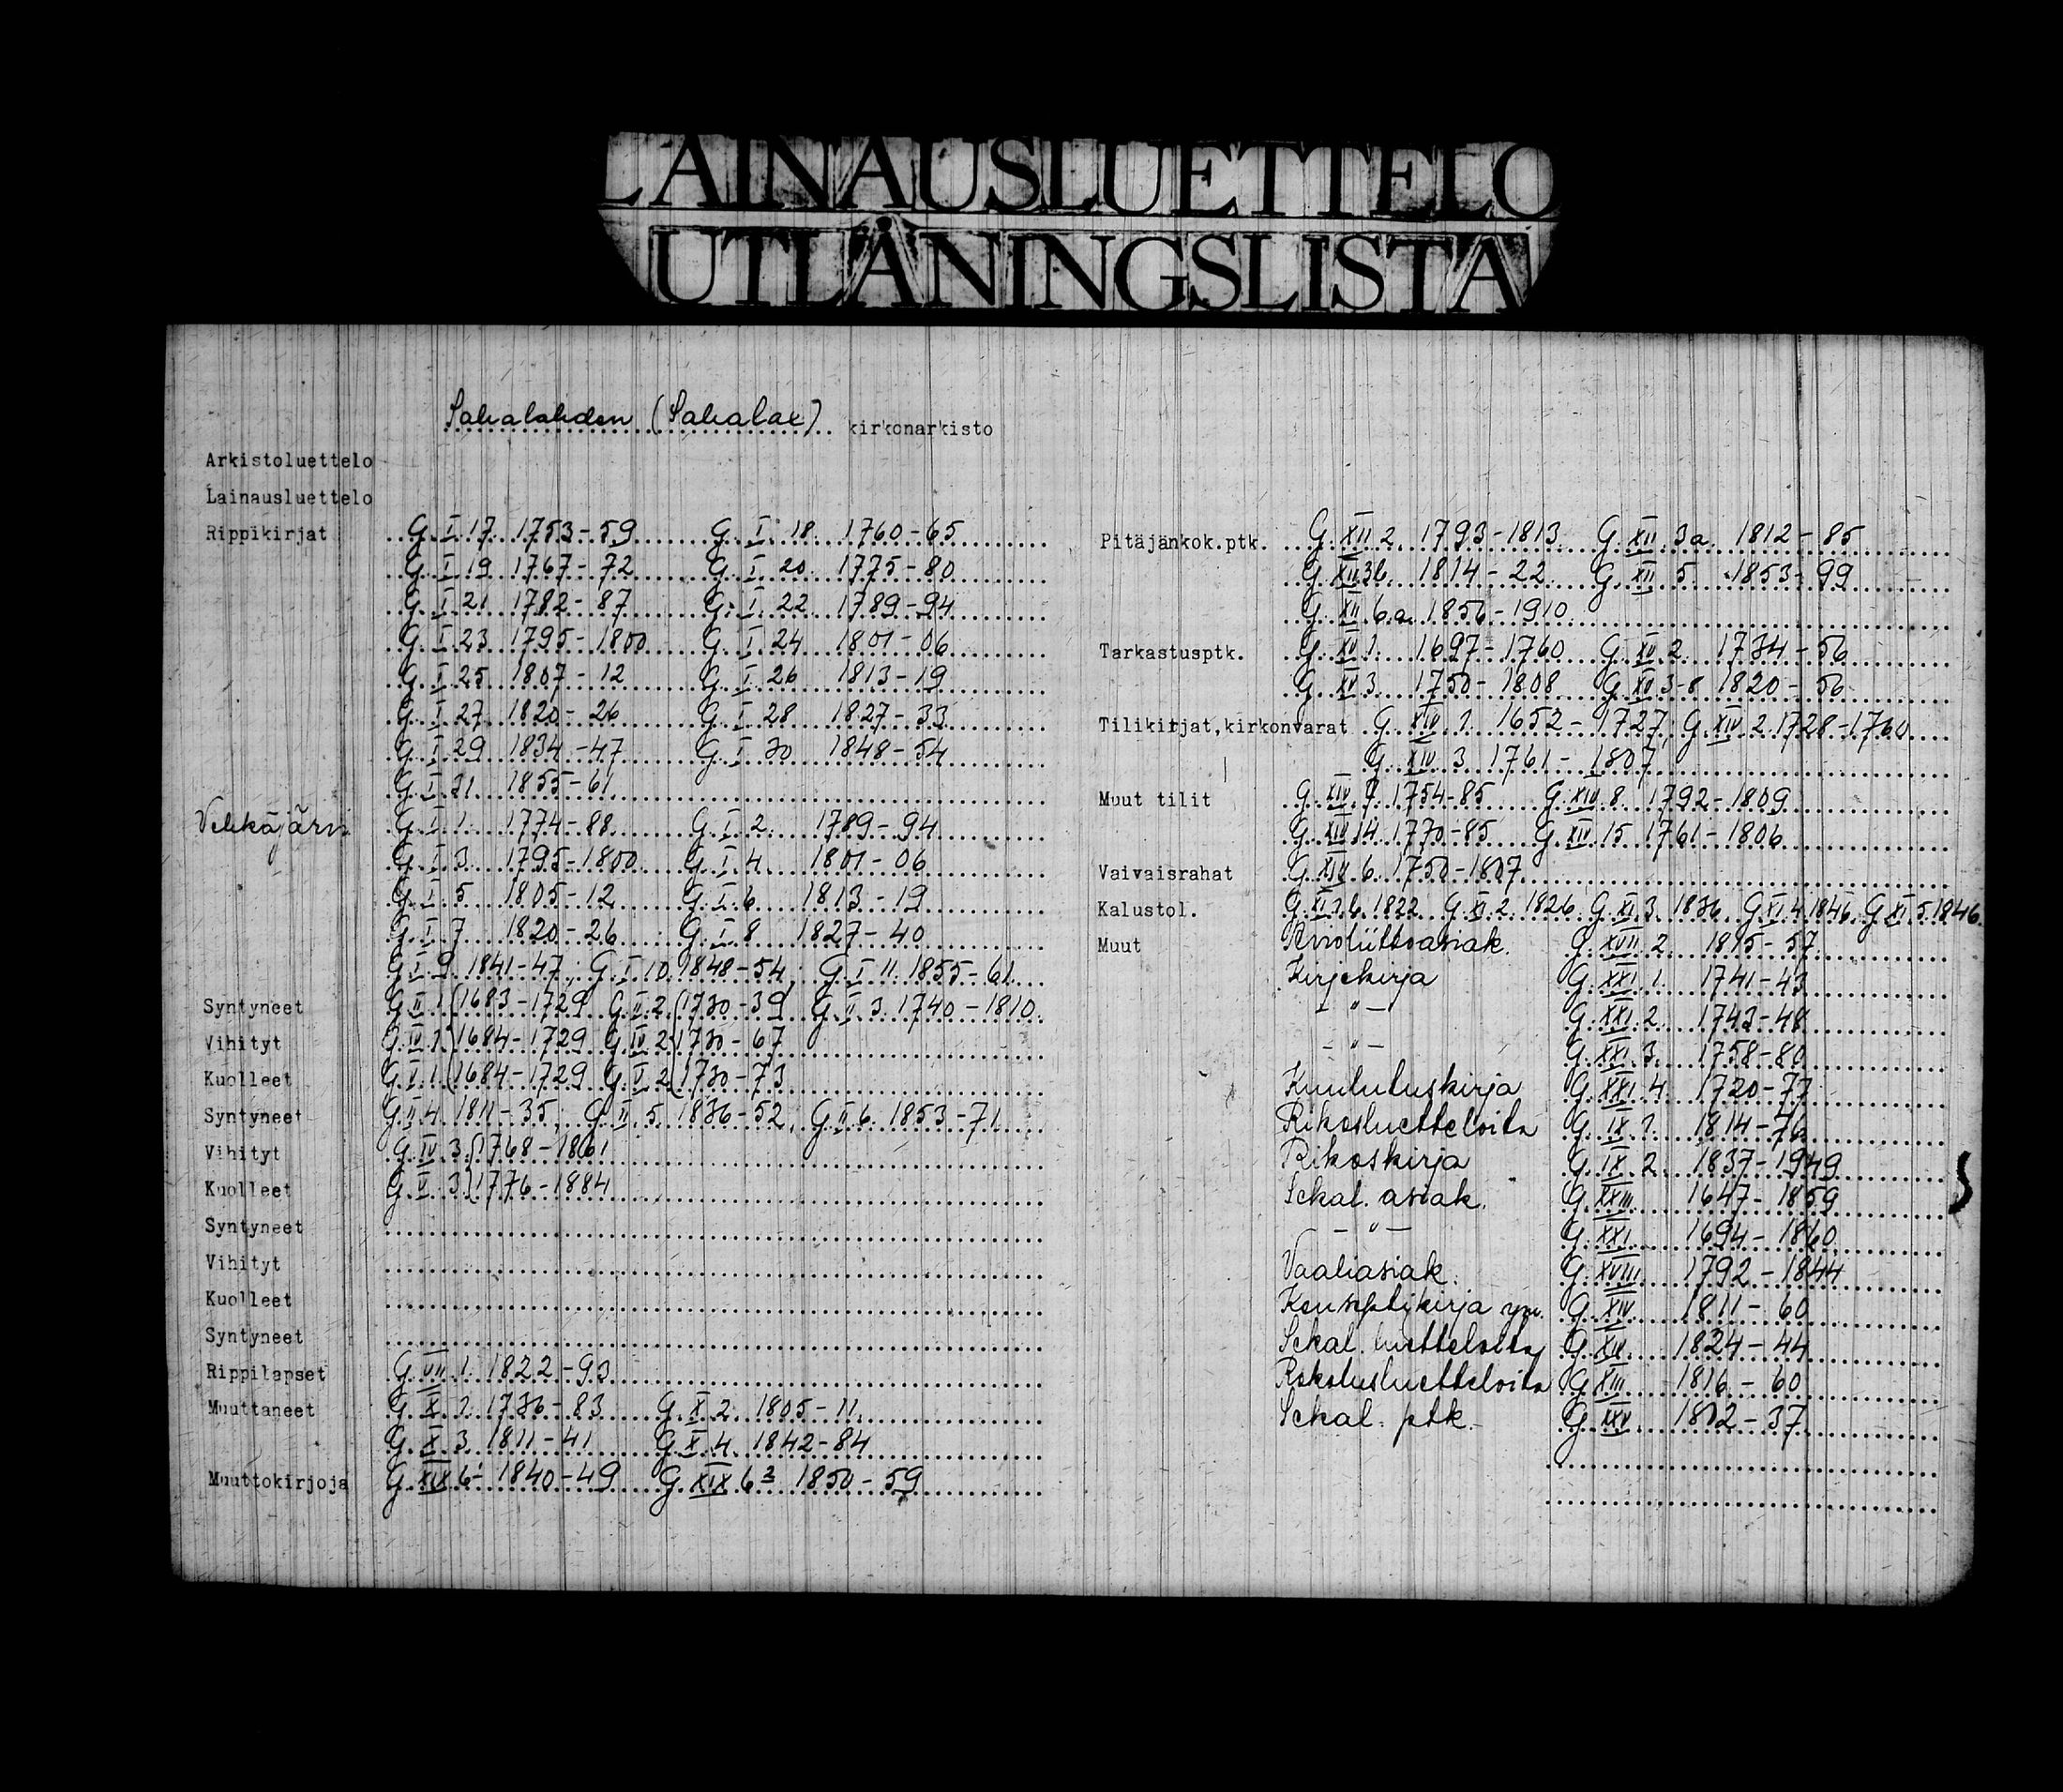 LAINAUSLUETTELO
UTLÅNINGSLISTA
Sahalahden (Sahalax) kirkonarkisto
Arkistoluettelo
Lainausluettelo
Rippikirjat G. I. 17 1753-59 G. I. 18 1760-65
G. I. 19 1767-72 G. I. 20 1775-80
G. I. 21 1782-87 G. I. 22 1789-94
G. I. 23 1795-1800 G. I. 24 1801-06
G. I. 25 1807-12 G. I. 26 1813-19
G. I. 27 1820-26 G. I. 28 1827-33
G. I. 29 1834-47 G. I. 30 1848-54
G. I. 31 1855-61
Vehkajärvi G. I. 1. 1774-88 G. I. 2. 1789-94
G. I. 3. 1795-1800 G. I. 4. 1801-06
G. I. 5 1805-12 G. I. 6 1813-19
G. I. 7 1820-26 G. I. 8 1827-40
G. I. 9. 1841-47; G. I. 10. 1848-54; G. I. 11. 1855-61
Syntyneet G. II. 1. (1683-1729 G. II. 2. (1730-39 G. II. 3. 1740-1810
Vihityt G. IV. 1. 1684-1729 G. IV. 2. 1730-67
Kuolleet G. V. 1. 1684-1729 G. V. 2 1730-73
Syntyneet G. II. 4. 1811-35; G. II. 5. 1836-52, G. II. 6. 1853-71
Vihityt G. IV. 3. 1768-1861
Kuolleet G. V. 3. 1776-1884
Syntyneet
Vihityt
Kuolleet
Syntyneet
Rippilapset G. VII. 1. 1822-93
Muuttaneet G. X. 1. 1786-83 G. X. 2 1805-11
G. X. 3. 1811-41 G. X. 4. 1842-84
Muuttokirjoja G. XIX 6 1840-49 G. XIX 6 1850-59
Pitäjänkok.ptk. G. XII. 2. 1793-1813 G. XII. 3a. 1812-85
G. XII. 3b. 1814-22 G. XII. 5. 1853-99
G. XII. 6.a. 1856-1910
Tarkastusptk. G. XV. 1. 1697-1760 G. XV. 2. 1734-56
G. XV. 3. 1750-1808 G. XV. 3-8 1820-56
Tilikirjat,kirkonvarat G. XIV. 1. 1652-1727; G. XIV. 2. 1728-1760
G. XIV. 3. 1761-1807
Muut tilit G. XIV. 7. 1754-85 G. XIV. 8. 1792-1809
G. XIV. 14. 1770-85 G. XIV. 15 1761-1806
Vaivaisrahat G. XIV. 6. 1750-1807
Kalustol. G. XI. 1.b. 1822 G. XI. 2. 1826 G. XI. 3. 1836 G. XI. 4. 1846, G. XI. 5. 1846.
Muut Avioliittoasiak. G. XVII. 2. 1815-57
Kirjekirja G. XXI. 1. 1741-43
- " - G. XXI. 2. 1743-48
- " - G. XXI. 3. 1758-80
Kuulutuskirja G. XXI. 4 1720-77
Rikosluetteloita G. IX. 1. 1814-76
Rikoskirja G. IX. 2. 1837-1949
Sekal. asiak. G. XXIII. 1647-1859
- " - G. XXI. 1694-1860
Vaaliasiak. G. XVIII. 1792-1844
Konseptikirja ym. G. XIV. 1811-60
Sekal. luetteloita G. XIV. 1824-44
Rokotusluetteloita G. XIII 1816-60
Sekal. ptk. G. XXV. 1802-37